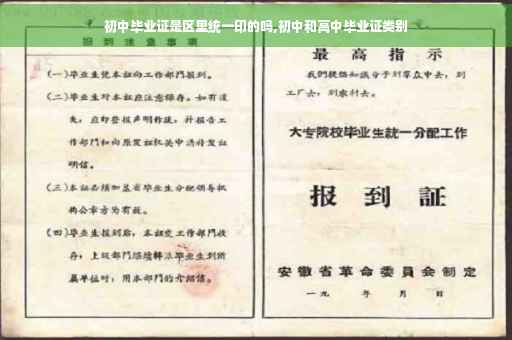 初中毕业证是区里统一印的吗,初中和高中毕业证类别
报到注意事项
(一)毕业生凭本证向工作部门报到。
(二)毕业生对本证应注意保存。如有遗
失,应即登报声明作废,并报告工
作部门和向原发证机关申请补发证
明信。
(三)本证必须加盖省毕业生分配领导机
构公章方为有效。
(四)毕业生报到后,本证交工作部门收
存;上级部门继续转派毕业生到所
属单位时,用本部门的介绍信。
最高指示
我们提倡知识分子到羣众中去,到
工厂去,到农村去。
大专院校毕业生統一分配工作
报到証
安徽省革命委員会制定
一九 年 月 日